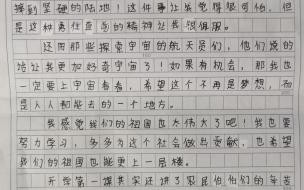 接到坚硬的陆地！这件事让我觉得很可怕，但
是这种勇往直前的精神让我很佩服。
还有那些探索宇宙的航天员们，他们说的
话让我更加好奇宇宙了！如果有机会，那我也
一定要上宇宙看看，希望这个不再是梦想，而
是人人都能去的一个地方。
我感觉我们的祖国也太伟大了吧！我也要
努力学习，多多为这个社会做出贡献，也希望
我们的祖国也能更上一层楼。
开学第一课其实还讲了农民伯伯们的辛苦